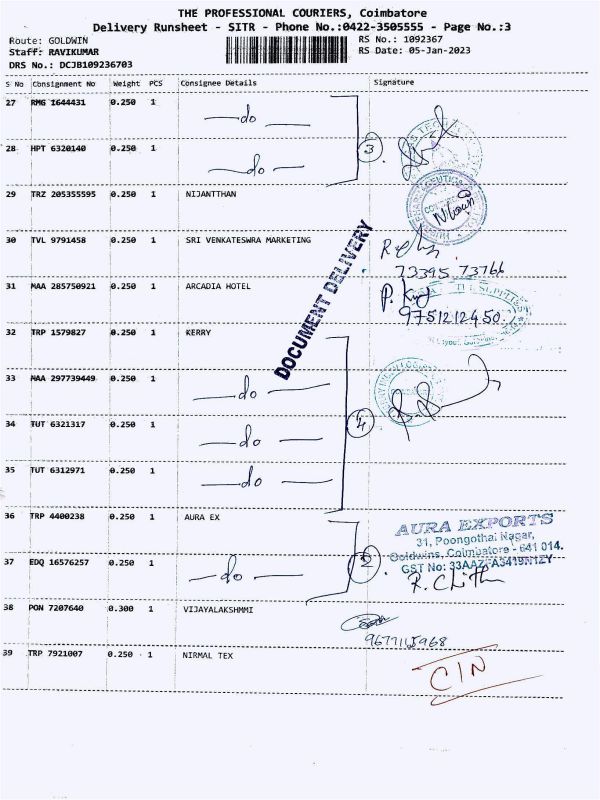 THE PROFESSIONAL COURIERS, Coimbatore
Delivery Runsheet - SITR - Phone No.:0422-3505555 - Page No.:3
Route: GOLDWIN RS No.: 1092367
Staff: RAVIKUMAR RS Date: 05-Jan-2023
DRS No.: DCJB109236703
S No Consignment No Weight PCS Consignee Details Signature
27 RMG 1644431 0.250 1
do
28 HPT 6320140 0.250 1
do
3
29 TRZ 205355595 0.250 1 NIJANTTHAN
30 TVL 9791458 0.250 1 SRI VENKATESWRA MARKETING
73395 73766
31 MAA 285750921 0.250 1 ARCADIA HOTEL
9751212450
DOCUMENT DELIVERY
32 TRP 1579827 0.250 1 KERRY
33 MAA 297739449 0.250 1
do
34 TUT 6321317 0.250 1
do
4
35 TUT 6312971 0.250 1
do
36 TRP 4400238 0.250 1 AURA EX
AURA EXPORTS
31, Poongothai Nagar,
Goldwins, Coimbatore - 641 014.
37 EDQ 16576257 0.250 1
do
2
GST No:
38 PON 7207640 0.300 1 VIJAYALAKSHMMI
39 TRP 7921007 0.250 1 NIRMAL TEX
C/N